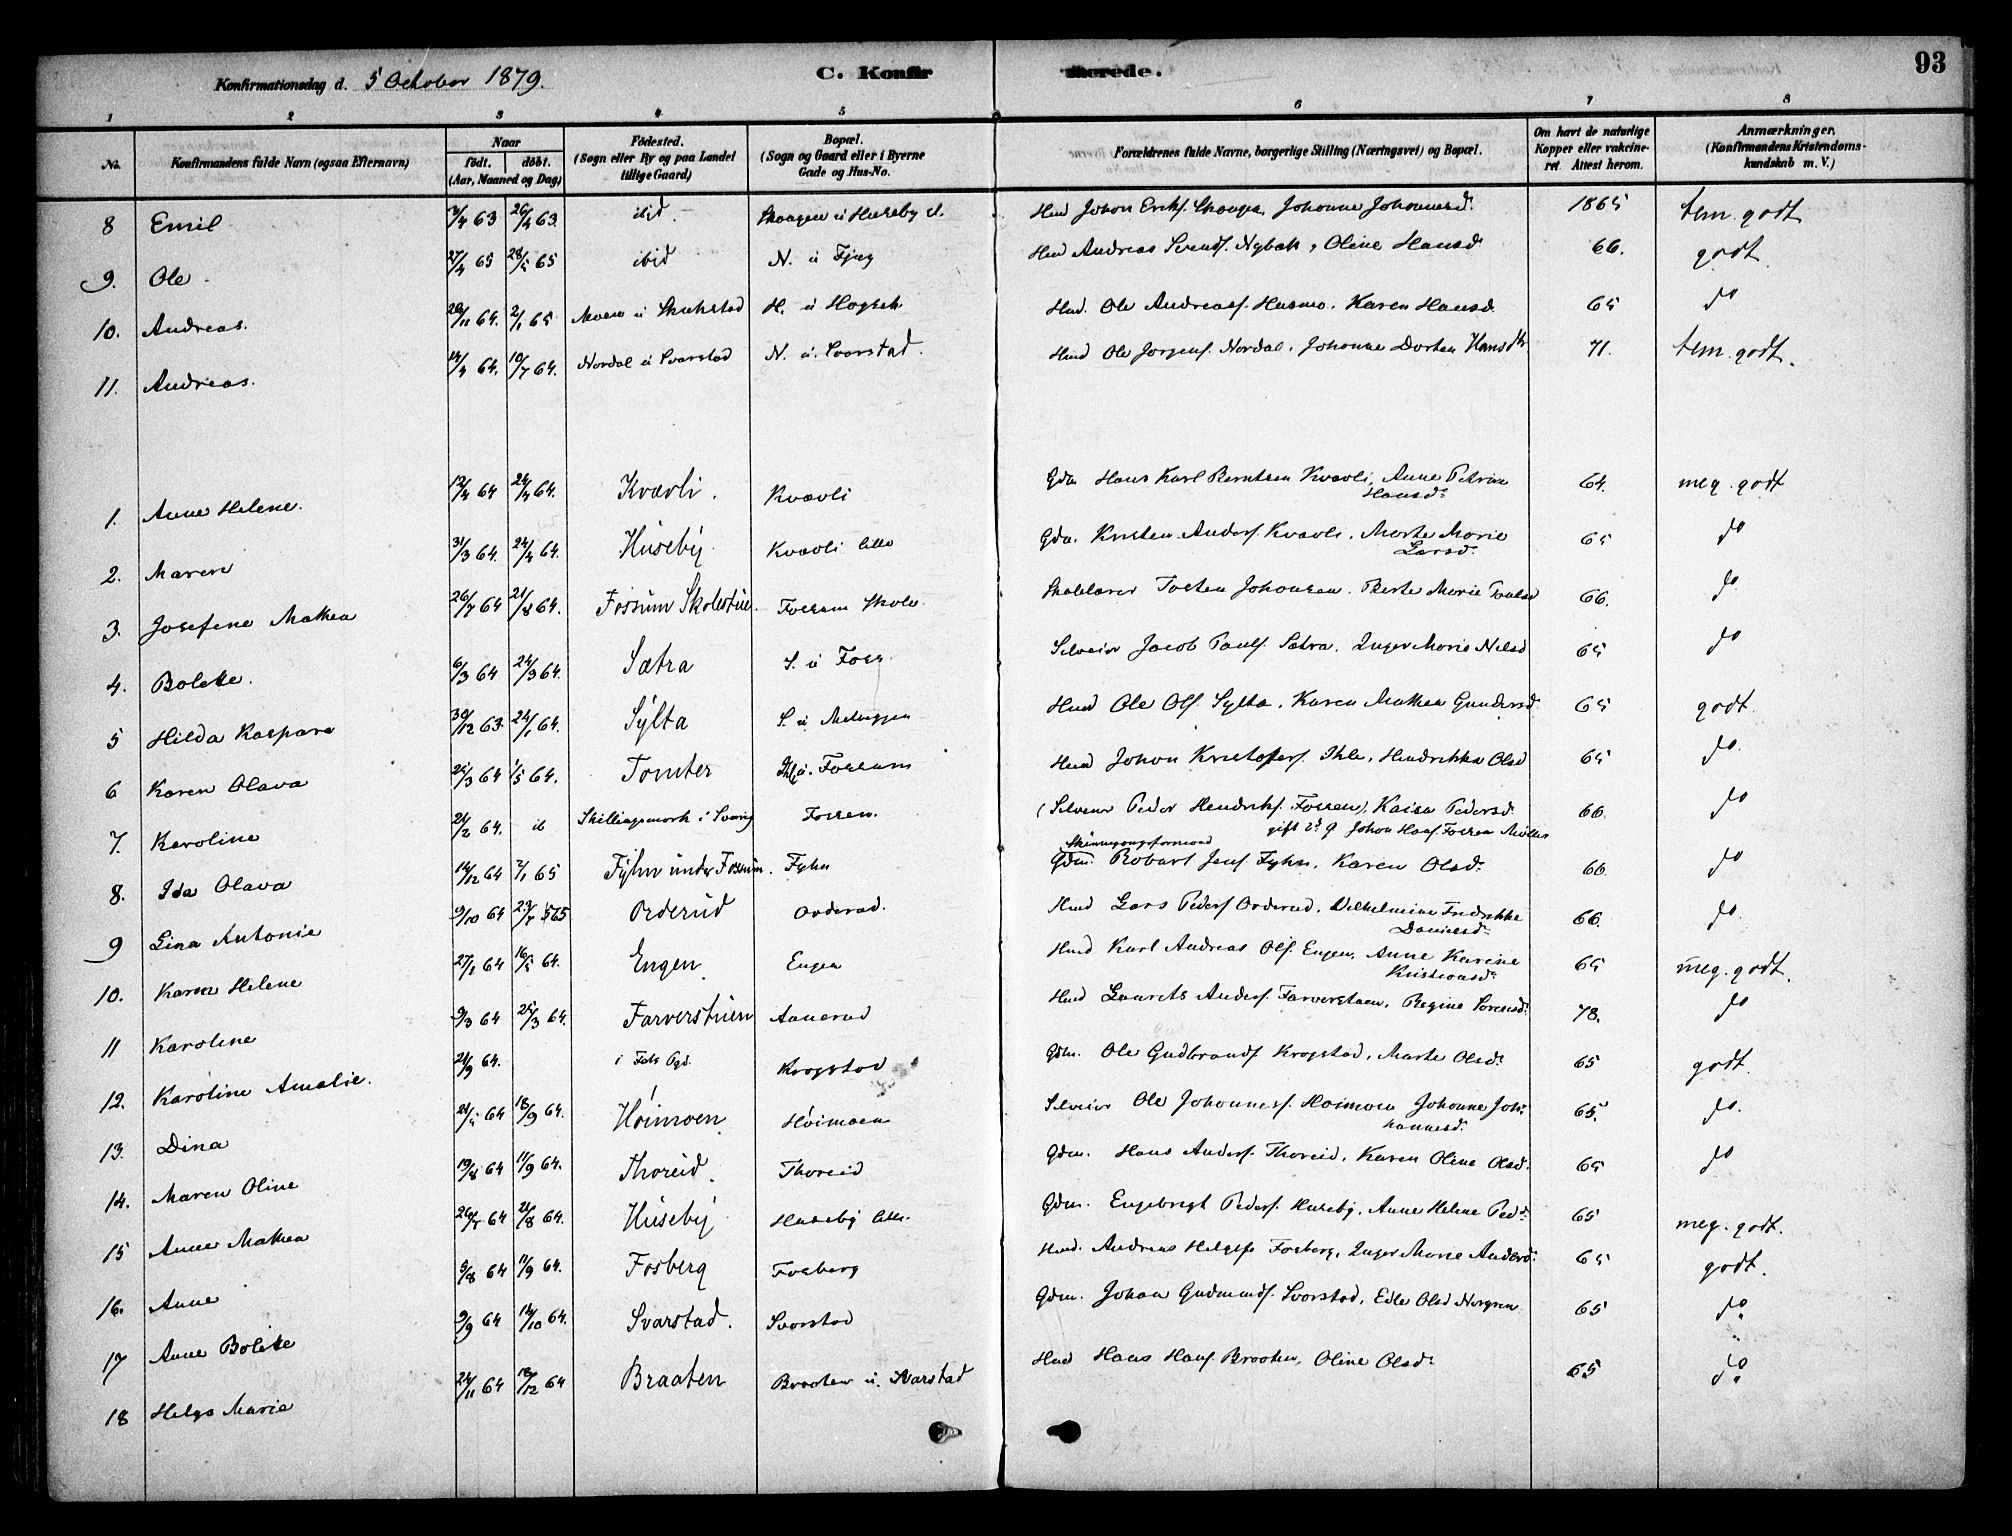 93
Konfirmationsdag d. 5 October 1879.
C. Konfirmerede.
1 2 3 4 5 6 7 8
No. Konfirmandens fulde Navn (ogsaa Efternavn) Naar født. døbt. (Aar, Maaned og Dag) Fødested. (Sogn eller By og paa Landet tillige Gaard) Bopæl. (Sogn og Gaard eller i Byerne Gade og Hus-No. Forældrenes fulde Navne, borgerlige Stilling (Næringsvei) og Bopæl. Om havt de naturlige Kopper eller vakcineret Attest herom. Anmærkninger. (Konfirmandens Kristendomskundskab m. V.)
8 Emil 63 26/4 63. ibid. Skaugen u Huseby Hmd Johan Eriks. Skaugen, Johanne Johannesd. 1865 tem. godt
9. Ole 27/4 65 28/5 65 ibid N. u Fjæg Hmd Andreas Svends. Nybak, Oline Hansd 66. godt.
10. Andreas. 20/11 64. 2/1 65 Moen u Skuhstad H. u Hogsek Hmd. Ole Andreass. Husmo, Karen Hansd. 65 do
11. Andreas. 14/4 64. 10/7 64. Nordal u Svarstad N. u. Svarstad. Hmd Ole Jorgens. Nordal, Johanne Dorten Hansdtr 71. tem. godt.
1. Anne Helene. 12/4 64 24/4 64. Kvævli. Kvævli Gdm Hans Karl Berntsen Kvævli, Anne Petrine Hansd. 64. meg. godt
2. Maren 31/3 64. 24/4 64. Huseby Kvævli Gdm. Kristen Anders. Kvævli, Marte Marie Larsd. 65 do
3. Josefine Mathea 26/7 64 21/8 64. Fossum Skolestue. Fossum Skole. Skolelærer Torsten Johansen, Berte Marie Paulsd 66. do
4. Bolette. 6/3 64 24/3 64. Sætra S. u Foss. Selveier Jacob Pauls. Sætra, Inger Marie Nilsd 65 do
5 Hilda Kaspara 30/12 63 24/1 64. Sylta S. u Meluggen Hmd Ole Ols. Sylta, Karen Mathea Gundersd. 65 godt.
6 Karen Olava 25/3 64 1/5 64. Tomter u. Fossum Hmd Johan Kristoffers. Ihle, Hendrikka Olsd 65 do.
7. Karoline 24/2 64. Skillingsmark i Sverig Fossen. (Selveier Peder Hendriks. Fossen), Kaisa Pedersd. gift 2d G Johan Haaf. Fossen Møller 66. do
8. Ida Olava 14/12 64 2/1 65 Fyhn under Fossum. Fyhn Gdm. Robart Jens. Fyhn, Karen Olsd. 66. do
9 Lina Antonie 9/10 64 Orderud Orderud. Hmd Lars Peders. Orderud, Vilhelmine Fredrikke Danielsd. 66. do.
10. Karen Helene 27/1 64 16/5 64. Engen. Engen Hmd Karl Andreas Ols. Engen, Anne Karine Kristiansd. 65 meg. godt.
11 Karoline 9/3 64 25/3 64. Farverstuen Aanerud Hmd Laurits Anders. Farverstuen, Regine Sorensd. 78. do
12. Karoline Amalie. 21/9 64. i Fets Pgd. Krogstad Gdm. Ole Gudbrands. Krogstad, Marte Olsd. 65 godt.
13. Dina 64 18/9 64. Høimoen Høimoen Selveier Ole Johanness. Hoimoen Johanne Johannesd. 65. do.
14. Maren Oline 19/8 64 11/9 64. Thoreid. Thoreid Gdm. Hans Anders. Thoreid, Karen Oline Olsd. 65 do
15 Anne Mathea 64 21/8 64. Huseby Huseby Gdm. Engebregt Peders. Huseby, Anne Helene Ped. 65 meg. godt.
16. Anne 9/8 64 11/9 64. Fosberg Fosberg Hmd. Andreas Helges. Fosberg, Inger Marie Andersd. 65 godt.
17 Anne Bolette 9/9 64 16/10 64. Svarstad. Svarstad Gdm. Johan Gudmunds. Svarstad, Edle Olsd Norgren 65 do
18 Helga Marie 24/11 64 18/12 64 Braaten Braaten u. Svarstad Hmd Hans Hans. Braaten, Oline Olsd. 65 do